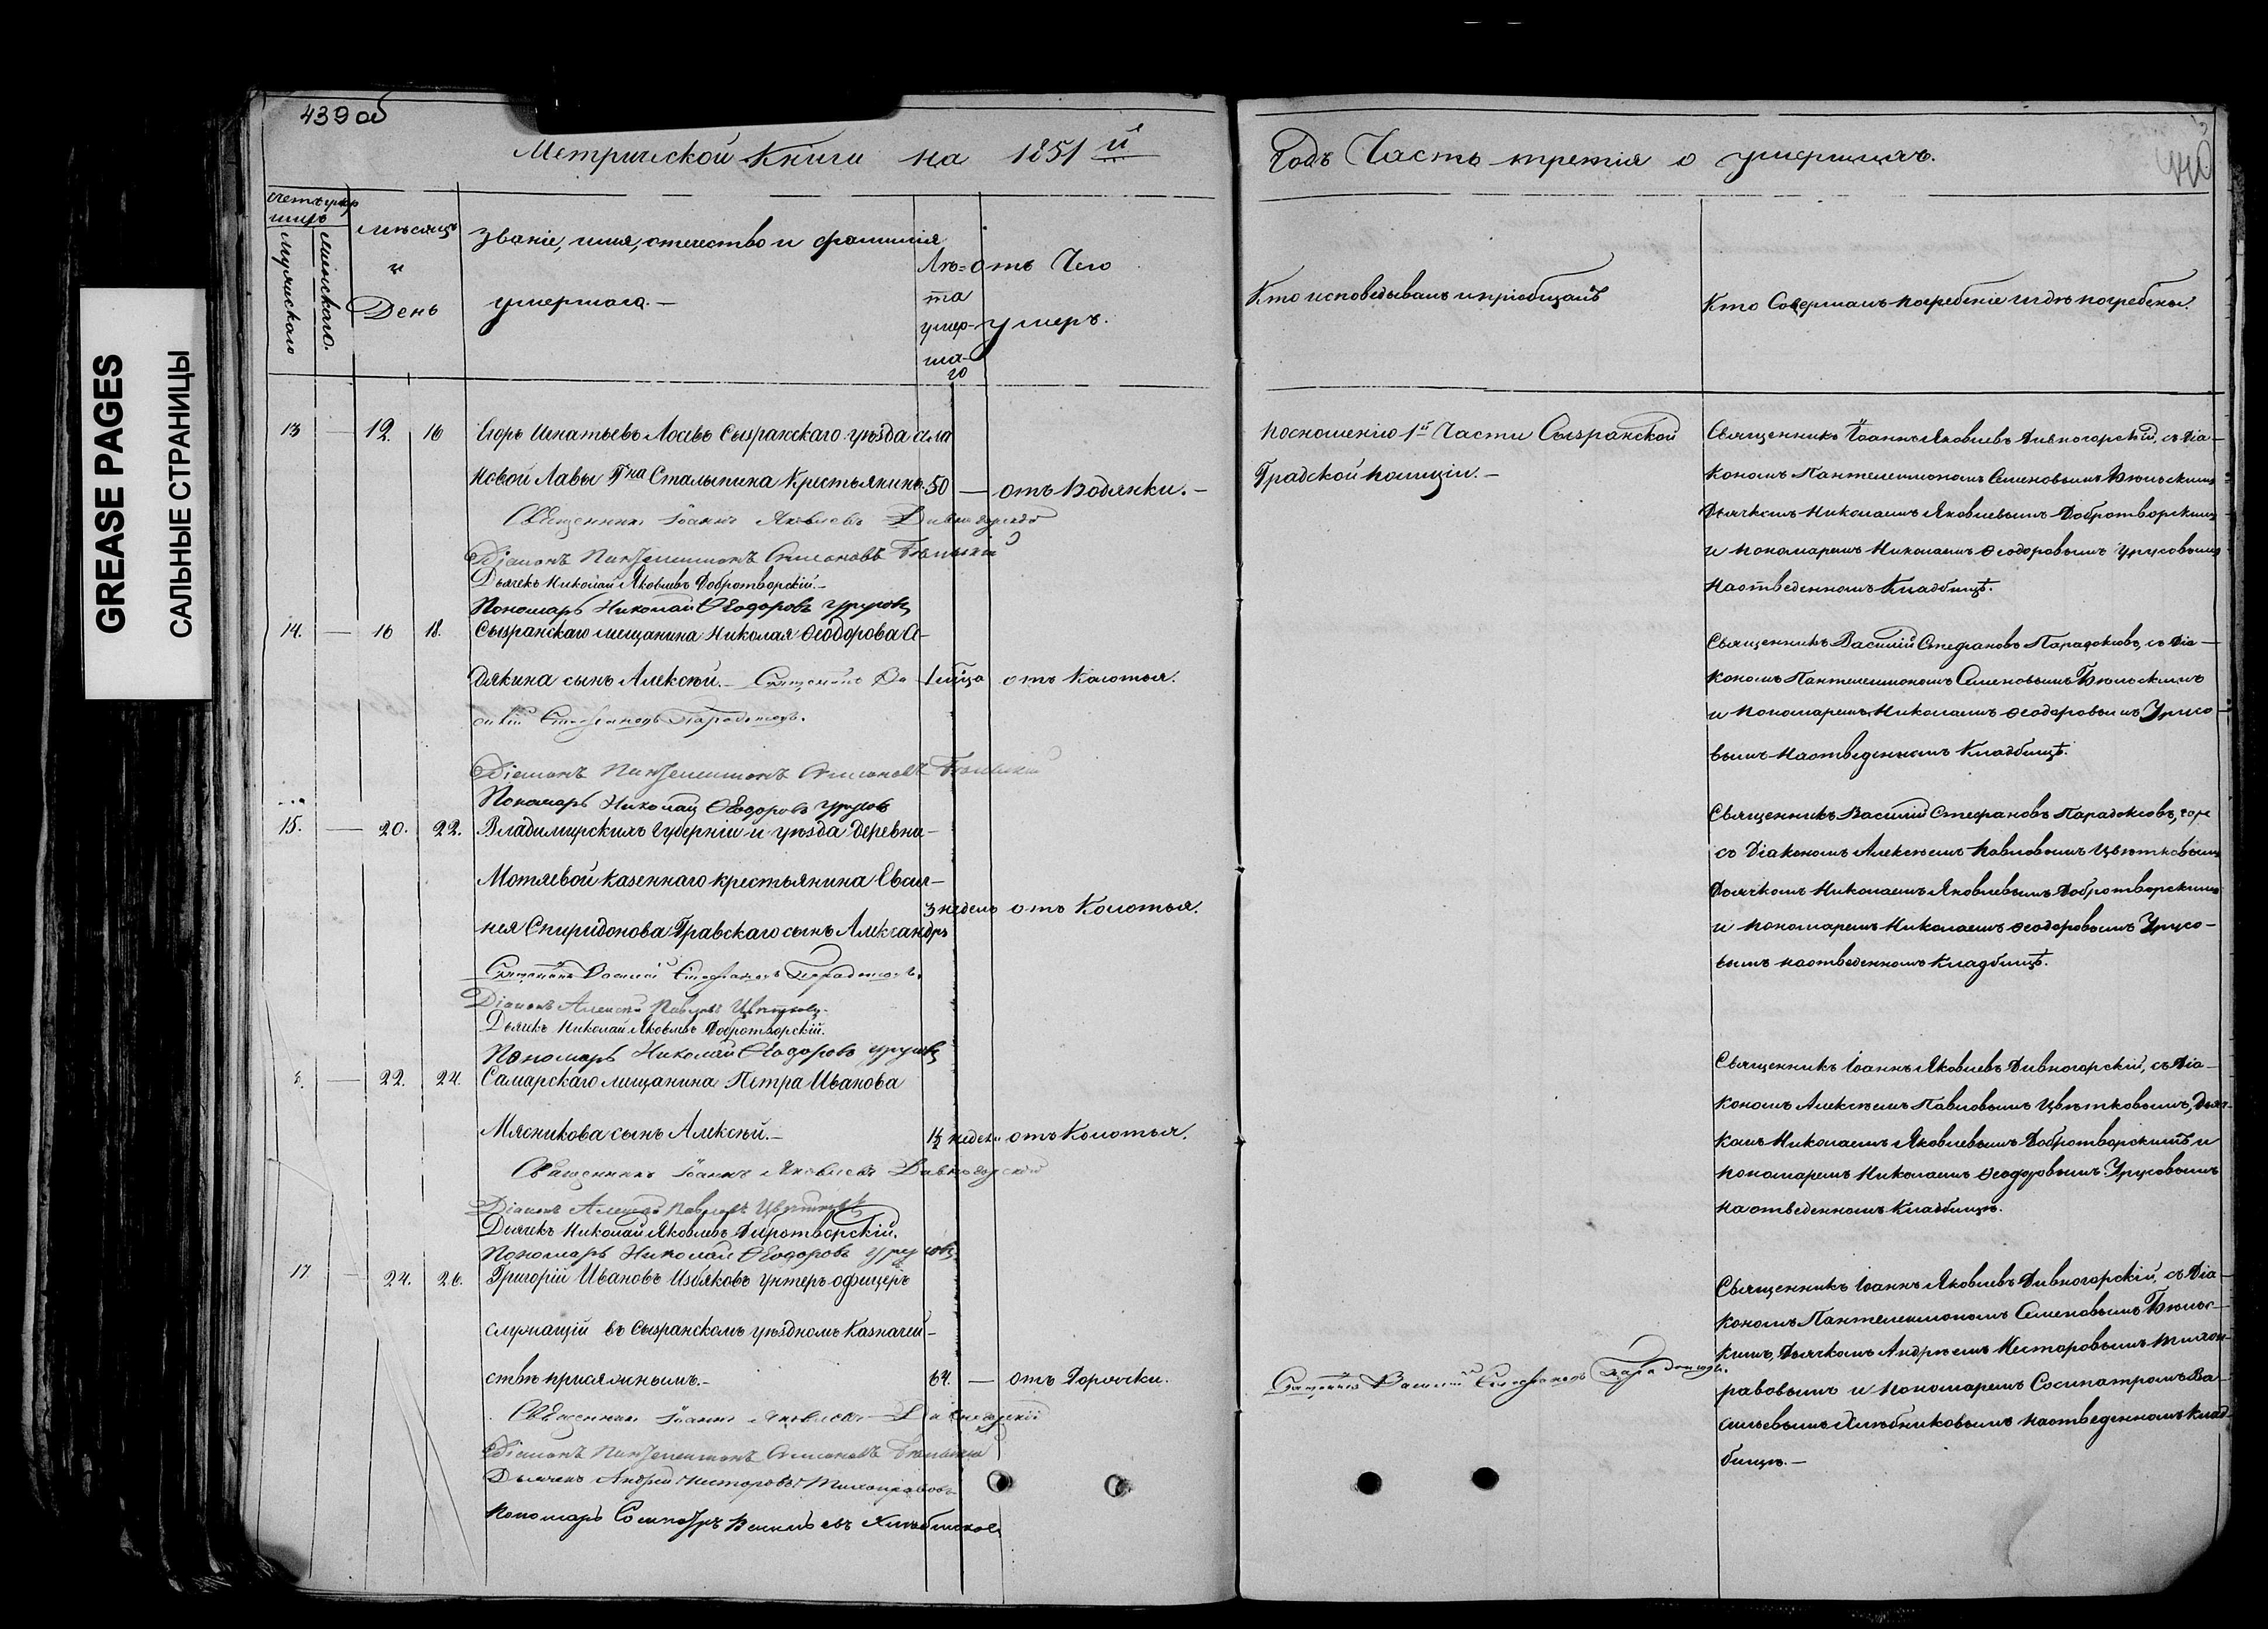 GREASE PAGES
САЛЬНЫЕ СТРАНИЦЫ
439 об
Метрической Книги на 1851 й
Годъ Часть третія о умершихъ.
Счетъ умер
шихъ
Мужескаго
Женскаго.
Мѣсяцъ
и
День
Званіе, имя, отечество и фамилія
умершаго.—
Лѣ-
та
умер-
ша-
го
отъ Чего
умеръ.
Кто исповѣдывалъ и пріобщалъ
Кто Совершалъ погребеніе и гдѣ погребены.
13 — 12. 16 Егоръ Игнатьевъ Лосевъ Сызранскаго уѣзда села
Новой Лавы Гна Сталыпина Крестьянинъ. 50 — отъ Водянки.—
Священникъ Іоаннъ Яковлевъ Дивногорскій
Діаконъ Пантелеимонъ Симеоновъ
Дьячекъ Николай Яковлевъ Добротворскій.—
Пономарь Николай Ѳеодоровъ Урусовъ
По сношенію 1й Части Сызранской
Градской полиціи.—
Священникъ Іоаннъ Яковлевъ Дивногорскій, съ Діа-
кономъ Пантелеимономъ Семеновымъ
Дьячкомъ Николаемъ Яковлевымъ Добротворскимъ
и пономаремъ Николаемъ Ѳеодоровымъ Урусовымъ
на отведенномъ Кладбищѣ.
14. — 16 18. Сызранскаго мещанина Николая Ѳеодорова
сынъ Алексѣй.— Священникъ Ва 1 мѣсца отъ Колотья.
силій Стефановъ Парадоксовъ.
Діаконъ Пантелеимонъ Симеоновъ
Пономарь Николай Ѳеодоровъ Урусовъ
Священникъ Василій Стефановъ Парадоксовъ, съ Діа-
кономъ Пантелеимономъ Семеновымъ
и пономаремъ Николаемъ Ѳеодоровымъ Урусо-
вымъ на отведенномъ Кладбищѣ.
15. — 20. 22. Владимирскихъ Губерніи и уѣзда деревни
Мотяевой казеннаго крестьянина Евси-
3 недель отъ Колотья.
нея Спиридонова Гравскаго сынъ Александръ
Священникъ Василій Стефановъ Парадоксовъ.
Діаконъ Алексѣй Павловъ Цвѣтковъ.
Дьячекъ Николай Яковлевъ Добротворскій.
Пономарь Николай Ѳеодоровъ Урусовъ
Священникъ Василій Стефановъ Парадоксовъ,
съ Діакономъ Алексѣемъ Павловымъ Цвѣтковымъ
Дьячкомъ Николаемъ Яковлевымъ Добротворскимъ
и пономаремъ Николаемъ Ѳеодоровымъ Урусо-
вымъ на отведенномъ Кладбищѣ.
— 22. 24. Самарскаго мещанина Петра Иванова
Мясникова сынъ Алексѣй.— 1½ недели отъ Колотья.
Священникъ Іоаннъ Яковлевъ Дивногорскій
Діаконъ Алексѣй Павловъ Цвѣтковъ
Дьячекъ Николай Яковлевъ Добротворскій.
Пономарь Николай Ѳеодоровъ Урусовъ.
Священникъ Іоаннъ Яковлевъ Дивногорскій, съ Діа-
кономъ Алексѣемъ Павловымъ Цвѣтковымъ, Дьяч-
комъ Николаемъ Яковлевымъ Добротворскимъ и
пономаремъ Николаемъ Ѳеодоровымъ Урусовымъ
на отведенномъ Кладбищѣ.
17. — 24. 26. Григорій Ивановъ Избяковъ унтеръ офицеръ
служащій въ Сызранскомъ уѣздномъ Казначей-
ствѣ присяжнымъ.— 64. — отъ Горячки.
Священникъ Іоаннъ Яковлевъ Дивногорскій
Діаконъ Пантелеимонъ Симеоновъ
Дьячекъ Андрей Несторовъ Тихонравовъ
Пономарь Сосипатръ Васильевъ Хлѣбниковъ
Священникъ Василій Стефановъ Парадоксовъ.
Священникъ Іоаннъ Яковлевъ Дивногорскій, съ Діа-
кономъ Пантелеимономъ Семеновымъ
кимъ, Дьячкомъ Андреемъ Несторовымъ Тихон-
равовымъ и пономаремъ Сосипатромъ Ва-
сильевымъ Хлѣбниковымъ на отведенномъ Клад-
бищѣ.—